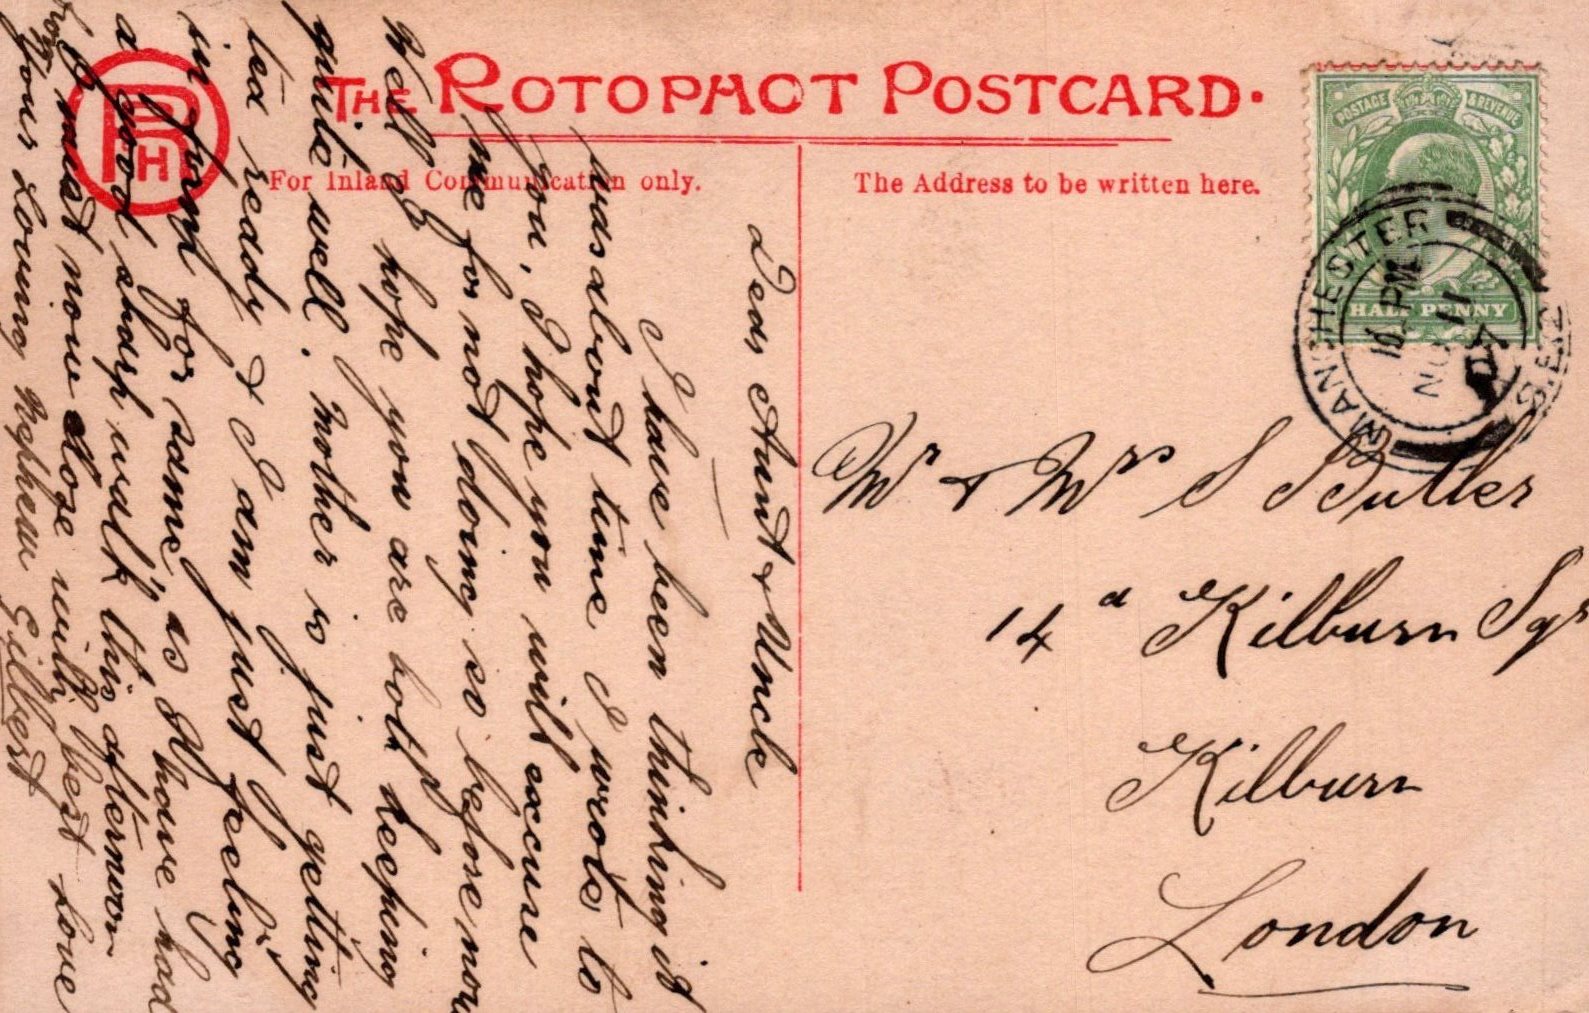 THE ROTOPHOT POSTCARD.
RPH
For Inland Communication only.
The Address to be written here.
POSTAGE & REVENUE
HALF PENNY
MANCHESTER S.E.12
PM
NO 11
Mr & Mrs S Butler
14a Kilburn Sqr
Kilburn
London
Dear Aunt & Uncle
I have been thinking it
was about time I wrote to
you, I hope you will excuse
me for not doing so before now
Well I hope you are both keeping
quite well. Mother is just getting
tea ready & I am just feeling
in form for same as I have had
a good sharp walk this afternoon
I must now close with best love
from your Loving Nephew Gilbert